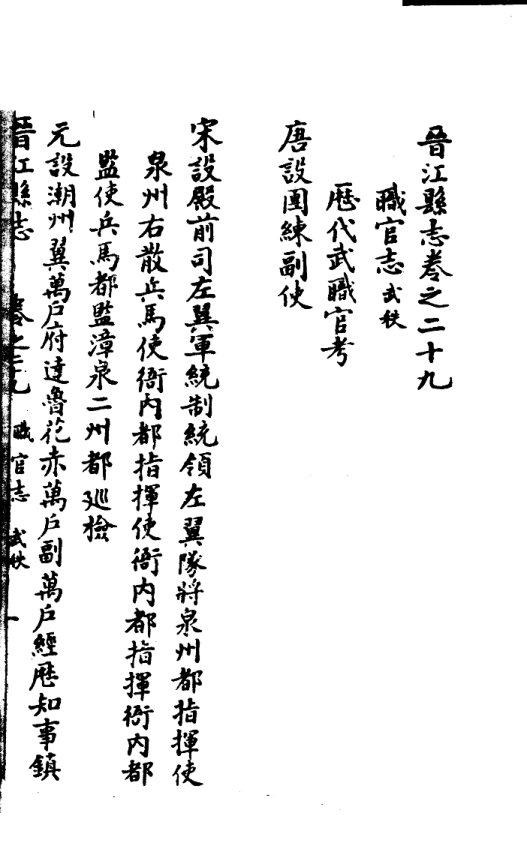 晉江縣志卷之二十九
職官志 武秩
歷代武職官考
唐設團練副使
宋設殿前司左翼軍統制統領左翼隊將泉州都指揮使
泉州右散兵馬使衙内都指揮使衙内都指揮衙内都
監使兵馬都監漳泉二州都廵檢
元設潮州翼萬戶府達魯花赤萬戶副萬戶經歷知事鎮
晉江縣志 卷之二十九 職官志 武秩 一